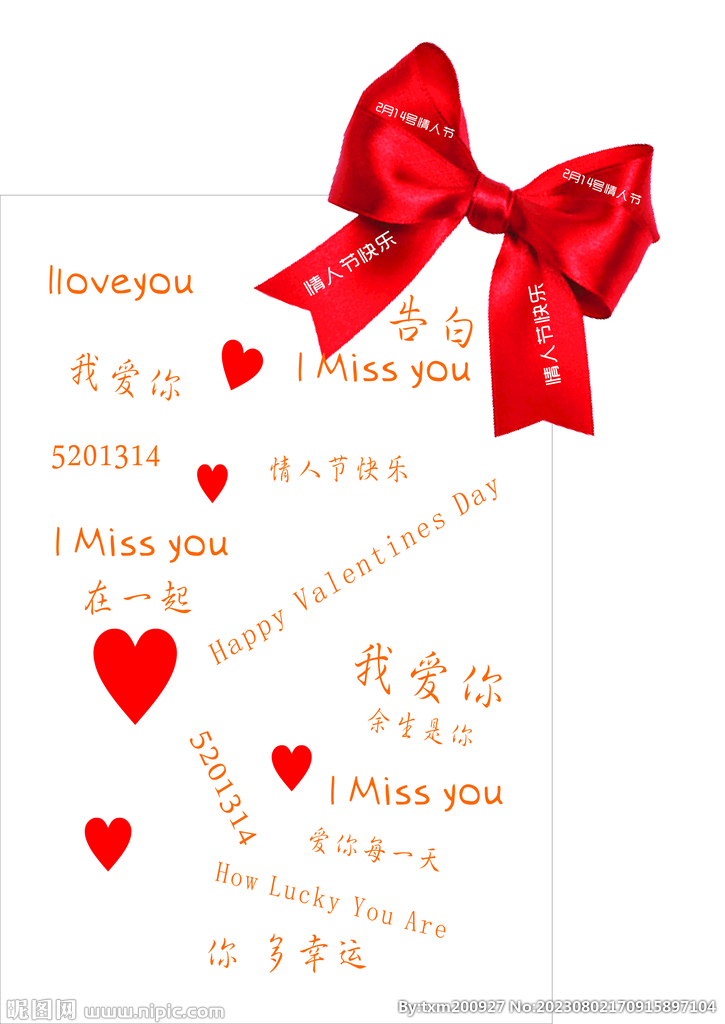 2月14号情人节
2月14号情人节
情人节快乐
情人节快乐
Iloveyou
告白
我爱你
I Miss you
5201314
情人节快乐
Happy Valentines Day
I Miss you
在一起
我爱你
余生是你
5201314
I Miss you
爱你每一天
How Lucky You Are
你 多幸运
昵图网 www.nipic.com
By:txm200927 No:20230802170915897104